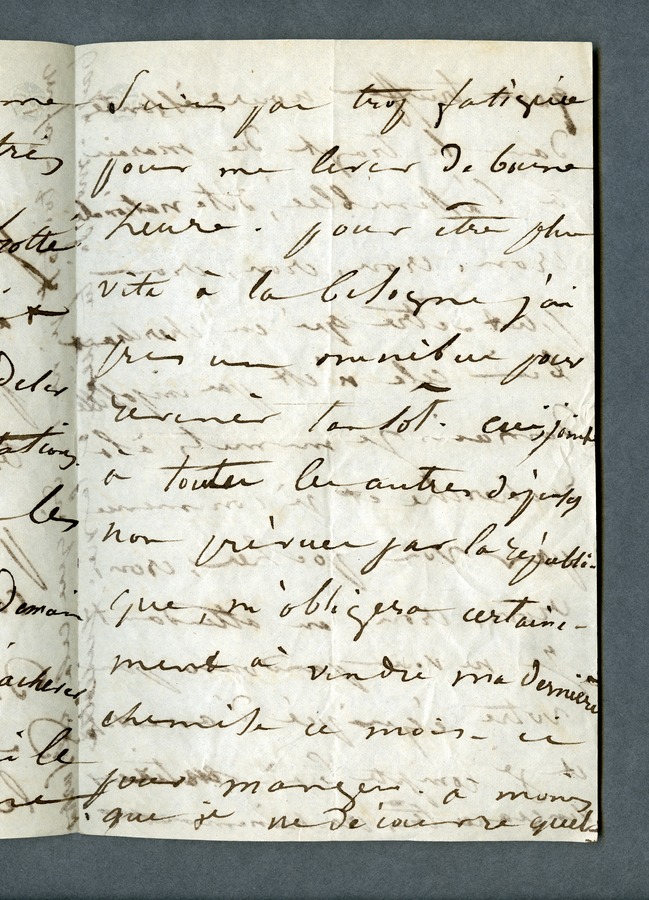 suis pas trop fatiguée
pour me lever de bonne
heure. pour être plus
vite à la besogne j'ai
pris un omnibus pour
revenir tantôt. ceci, joint
a toutes les autres dépenses
non prévues par la républi-
que, m'obligera certaine-
ment à vendre ma dernière
chemise ce mois-ci
pour manger. a moins
que je ne découvre quel-
très
les
Demain